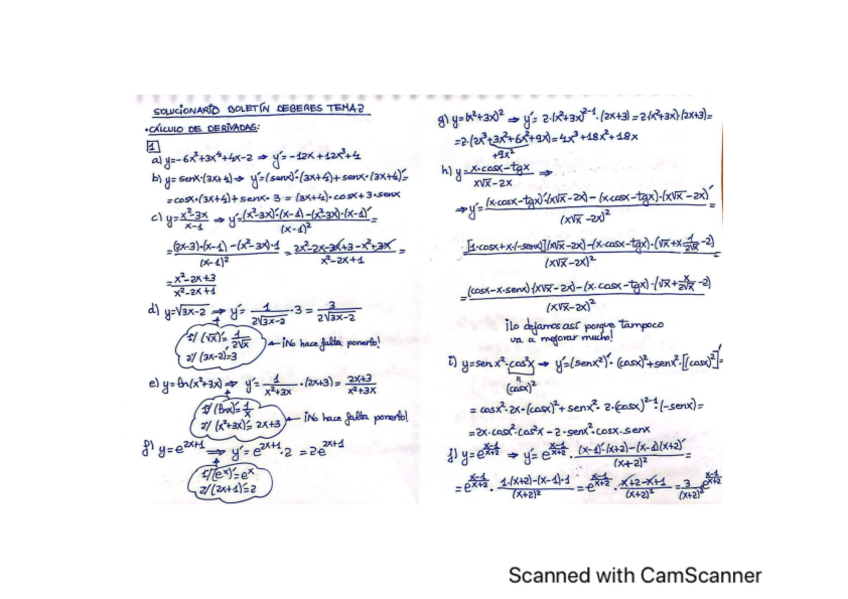 SOLUCIONARIO BOLETÍN DEBERES TEMA 2
• CÁLCULO DE DERIVADAS:
1
a) y=-6x²+3x⁴+4x-2 ⇒ y'=-12x+12x³+4
b) y=senx·(3x+4) ⇒ y'=(senx)'·(3x+4)+senx·(3x+4)'=
=cosx·(3x+4)+senx·3=(3x+4)·cosx+3·senx
c) y=(x²-3x)/(x-1) ⇒ y'=((x²-3x)'·(x-1)-(x²-3x)·(x-1)')/(x-1)²=
=((2x-3)·(x-1)-(x²-3x)·1)/(x-1)²=(2x²-2x-3x+3-x²+3x)/(x²-2x+1)=
=(x²-2x+3)/(x²-2x+1)
d) y=√(3x-2) ⇒ y'=1/(2√(3x-2))·3=3/(2√(3x-2))
1/ (√x)'=1/(2√x)
2/ (3x-2)'=3
¡No hace falta ponerlo!
e) y=ln(x²+3x) ⇒ y'=1/(x²+3x)·(2x+3)=(2x+3)/(x²+3x)
1/ (lnx)'=1/x
2/ (x²+3x)'=2x+3
¡No hace falta ponerlo!
f) y=e^(2x+1) ⇒ y'=e^(2x+1)·2=2e^(2x+1)
1/ (e^x)'=e^x
2/ (2x+1)'=2
g) y=(x²+3x)² ⇒ y'=2·(x²+3x)^(2-1)·(2x+3)=2·(x²+3x)·(2x+3)=
=2·(2x³+3x²+6x²+9x)=4x³+18x²+18x
+9x²
h) y=(x·cosx-tgx)/(x√x-2x) ⇒
⇒ y'=((x·cosx-tgx)'·(x√x-2x)-(x·cosx-tgx)·(x√x-2x)')/(x√x-2x)²=
=([1·cosx+x·(-senx)](x√x-2x)-(x·cosx-tgx)·(√x+x·1/(2√x)-2))/(x√x-2x)²
=((cosx-x·senx)(x√x-2x)-(x·cosx-tgx)·(√x+x/(2√x)-2))/(x√x-2x)²
¡Lo dejamos así porque tampoco
va a mejorar mucho!
i) y=senx²·cos²x ⇒ y'=(senx²)'·(cosx)²+senx²·[(cosx)²]'=
(cosx)²
=cosx²·2x·(cosx)²+senx²·2·(cosx)^(2-1)·(-senx)=
=2x·cosx²·cos²x-2·senx²·cosx·senx
j) y=e^((x-1)/(x+2)) ⇒ y'=e^((x-1)/(x+2))·((x-1)'·(x+2)-(x-1)(x+2)')/(x+2)²=
=e^((x-1)/(x+2))·(1·(x+2)-(x-1)·1)/(x+2)²=e^((x-1)/(x+2))·(x+2-x+1)/(x+2)²=3/(x+2)² e^((x-1)/(x+2))
Scanned with CamScanner